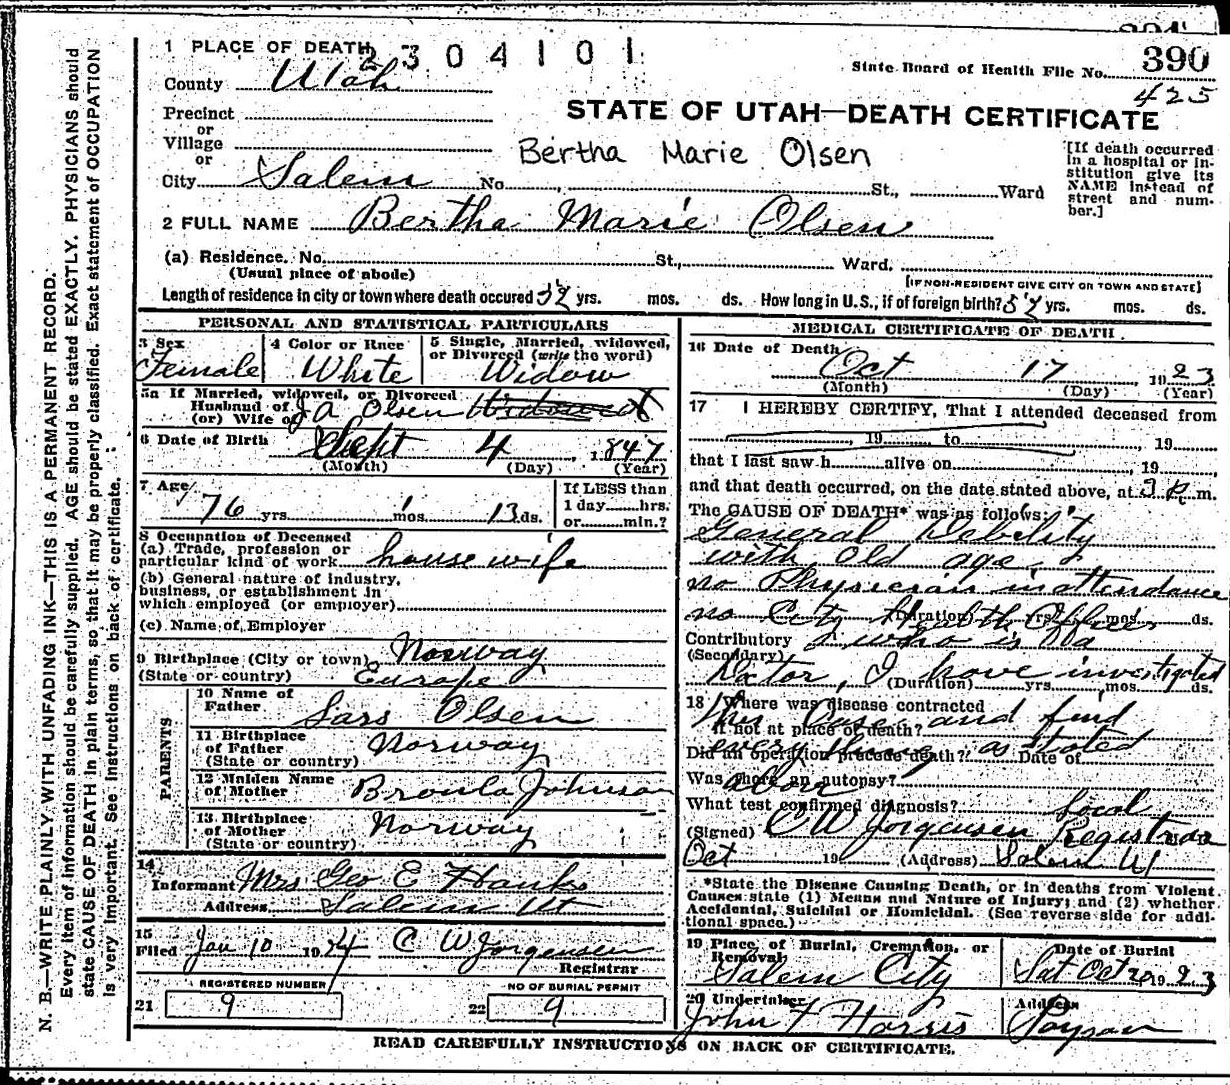 2304101
1 PLACE OF DEATH
County Utah
State Board of Health File No. 390
425
STATE OF UTAH—DEATH CERTIFICATE
Precinct
or
Village
or
City Salem No. St., Ward
Bertha Marie Olsen
[If death occurred
in a hospital or in-
stitution give its
NAME instead of
street and num-
ber.]
2 FULL NAME Bertha Marie Olsen
(a) Residence. No. St., Ward.
(Usual place of abode)
[IF NON-RESIDENT GIVE CITY OR TOWN AND STATE]
Length of residence in city or town where death occured yrs. mos. ds. How long in U.S., if of foreign birth? yrs. mos. ds.
PERSONAL AND STATISTICAL PARTICULARS
3 Sex
Female
4 Color or Race
White
5 Single, Married, widowed,
or Divorced (write the word)
Widow
5a If Married, widowed, or Divorced
Husband of
(or) Wife of J A Olsen
6 Date of Birth Sept 4, 1847
(Month) (Day) (Year)
7 Age
76 yrs 1 mos 13 ds.
If LESS than
1 day hrs.
or min.?
8 Occupation of Deceased
(a) Trade, profession or
particular kind of work house wife
(b) General nature of industry,
business, or establishment in
which employed (or employer)
(c) Name of Employer
9 Birthplace (City or town) Norway
(State or country) Europe
PARENTS
10 Name of
Father Lars Olsen
11 Birthplace
of Father Norway
(State or country)
12 Maiden Name
of Mother Johnson
13 Birthplace
of Mother Norway
(State or country)
14
Informant Mrs Geo E Hanks
Address Salem Ut
15
Filed Jan 10 1924 C W Jorgensen
Registrar
REGISTERED NUMBER
21 9
NO OF BURIAL PERMIT
22 9
MEDICAL CERTIFICATE OF DEATH
16 Date of Death
Oct 17, 1923
(Month) (Day) (Year)
17 I HEREBY CERTIFY, That I attended deceased from
, 19 to , 19
that I last saw h alive on , 19
and that death occurred, on the date stated above, at 3 p. m.
The CAUSE OF DEATH* was as follows:
General Debelity
with old age.
no Physician in attendance
no City Health Officer
(Duration) yrs. mos. ds.
Contributory I who is No
(Secondary)
Doctor, I have investigated
(Duration) yrs. mos. ds.
18 Where was disease contracted
this Case and find
if not at place of death?
every thing as stated
Did an operation precede death? Date of
above
Was there an autopsy?
What test confirmed diagnosis? Local
(Signed) C W Jorgensen Registrar
Oct 19 (Address) Salem Ut
*State the Disease Causing Death, or in deaths from Violent
Causes state (1) Means and Nature of Injury; and (2) whether
Accidental, Suicidal or Homicidal. (See reverse side for addi-
tional space.)
19 Place of Burial, Cremation, or
Removal
Salem City
Date of Burial
Sat Oct 20 1923
20 Undertaker
John T Harris
Address
Payson
READ CAREFULLY INSTRUCTIONS ON BACK OF CERTIFICATE.
N. B.—WRITE PLAINLY WITH UNFADING INK—THIS IS A PERMANENT RECORD.
Every item of information should be carefully supplied. AGE should be stated EXACTLY. PHYSICIANS should
state CAUSE OF DEATH in plain terms, so that it may be properly classified. Exact statement of OCCUPATION
is very important. See Instructions on back of certificate.